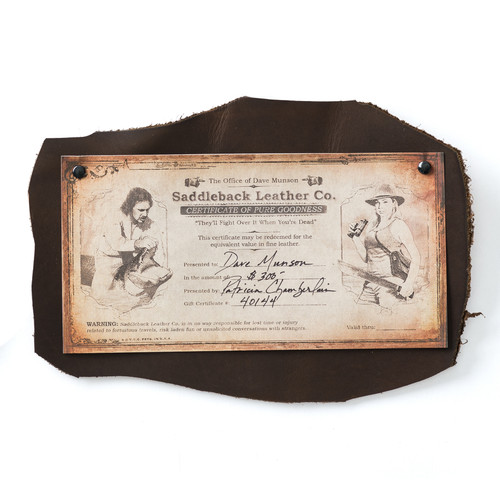 The Office of Dave Munson
Saddleback Leather Co.
CERTIFICATE OF PURE GOODNESS
"They'll Fight Over It When You're Dead"
This certificate may be redeemed for the
equivalent value in fine leather.
Presented to: Dave Munson
In the amount of: $300
Presented by: Patricia Chamberlain
Gift Certificate #: 40144
WARNING: Saddleback Leather Co. is in no way responsible for lost time or injury
related to hazardous travels, civil
or unsolicited conversations with strangers.
Valid thru: